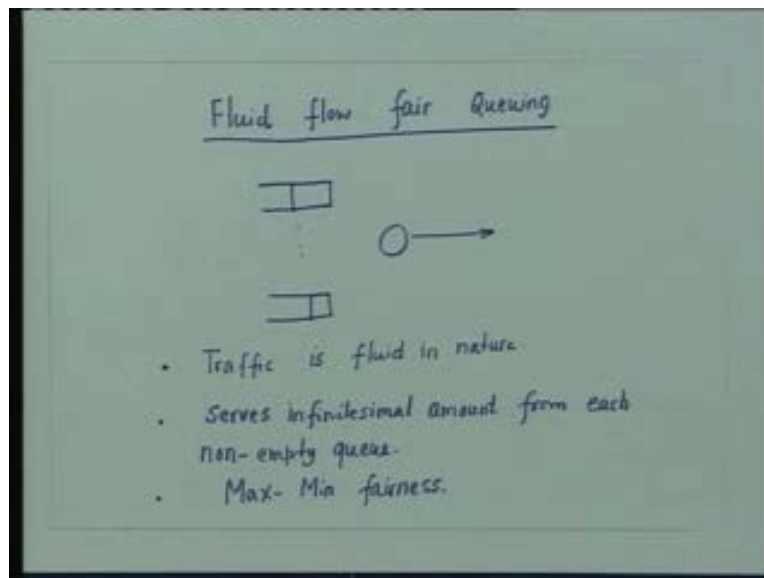 Fluid flow fair Queuing
• Traffic is fluid in nature
• Serves infinitesimal amount from each
non-empty queue.
• Max-Min fairness.